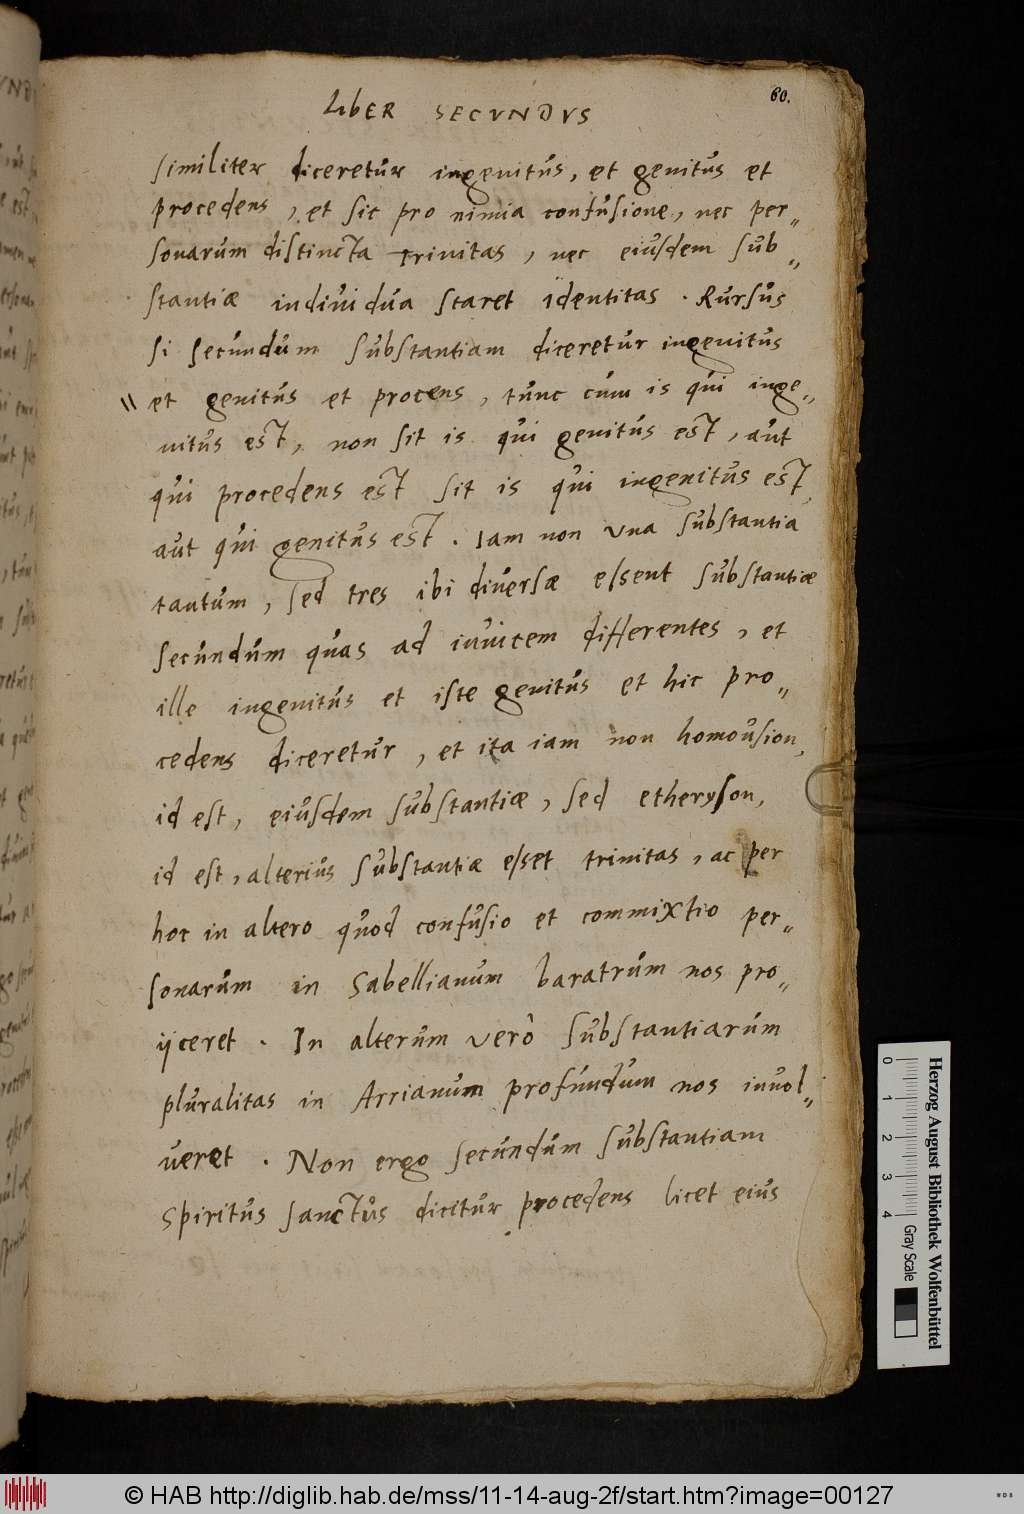 60.
LIBER SECVNDVS
similiter diceretur ingenitus, et genitus et
procedens, et sic pro nimia confusione, nec per„
sonarum distincta trinitas, nec eiusdem sub„
stantiæ indiuidua staret identitas. Rursus
si secundum substantiam diceretur ingenitus
" et genitus et procens, tunc cum is qui inge„
nitus est, non sit is qui genitus est, aut
qui procedens est sit is qui ingenitus est,
aut qui genitus est. Iam non una substantia
tantum, sed tres ibi diuersæ essent substantiæ
secundum quas ad inuicem differentes, et
ille ingenitus et iste genitus et hic pro„
cedens diceretur, et ita iam non homousion,
id est, eiusdem substantiæ, sed etheryson,
id est, alterius substantiæ esset trinitas, ac per
hoc in altero quod confusio et commixtio per„
sonarum in Sabellianum baratrum nos pro„
ijceret. In alterum verò substantiarum
pluralitas in Arrianum profundum nos inuol„
ueret. Non ergo secundum substantiam
spiritus sanctus dicitur procedens licet eius
Herzog August Bibliothek Wolfenbüttel
0 1 2 3 4 Gray Scale
© HAB http://diglib.hab.de/mss/11-14-aug-2f/start.htm?image=00127